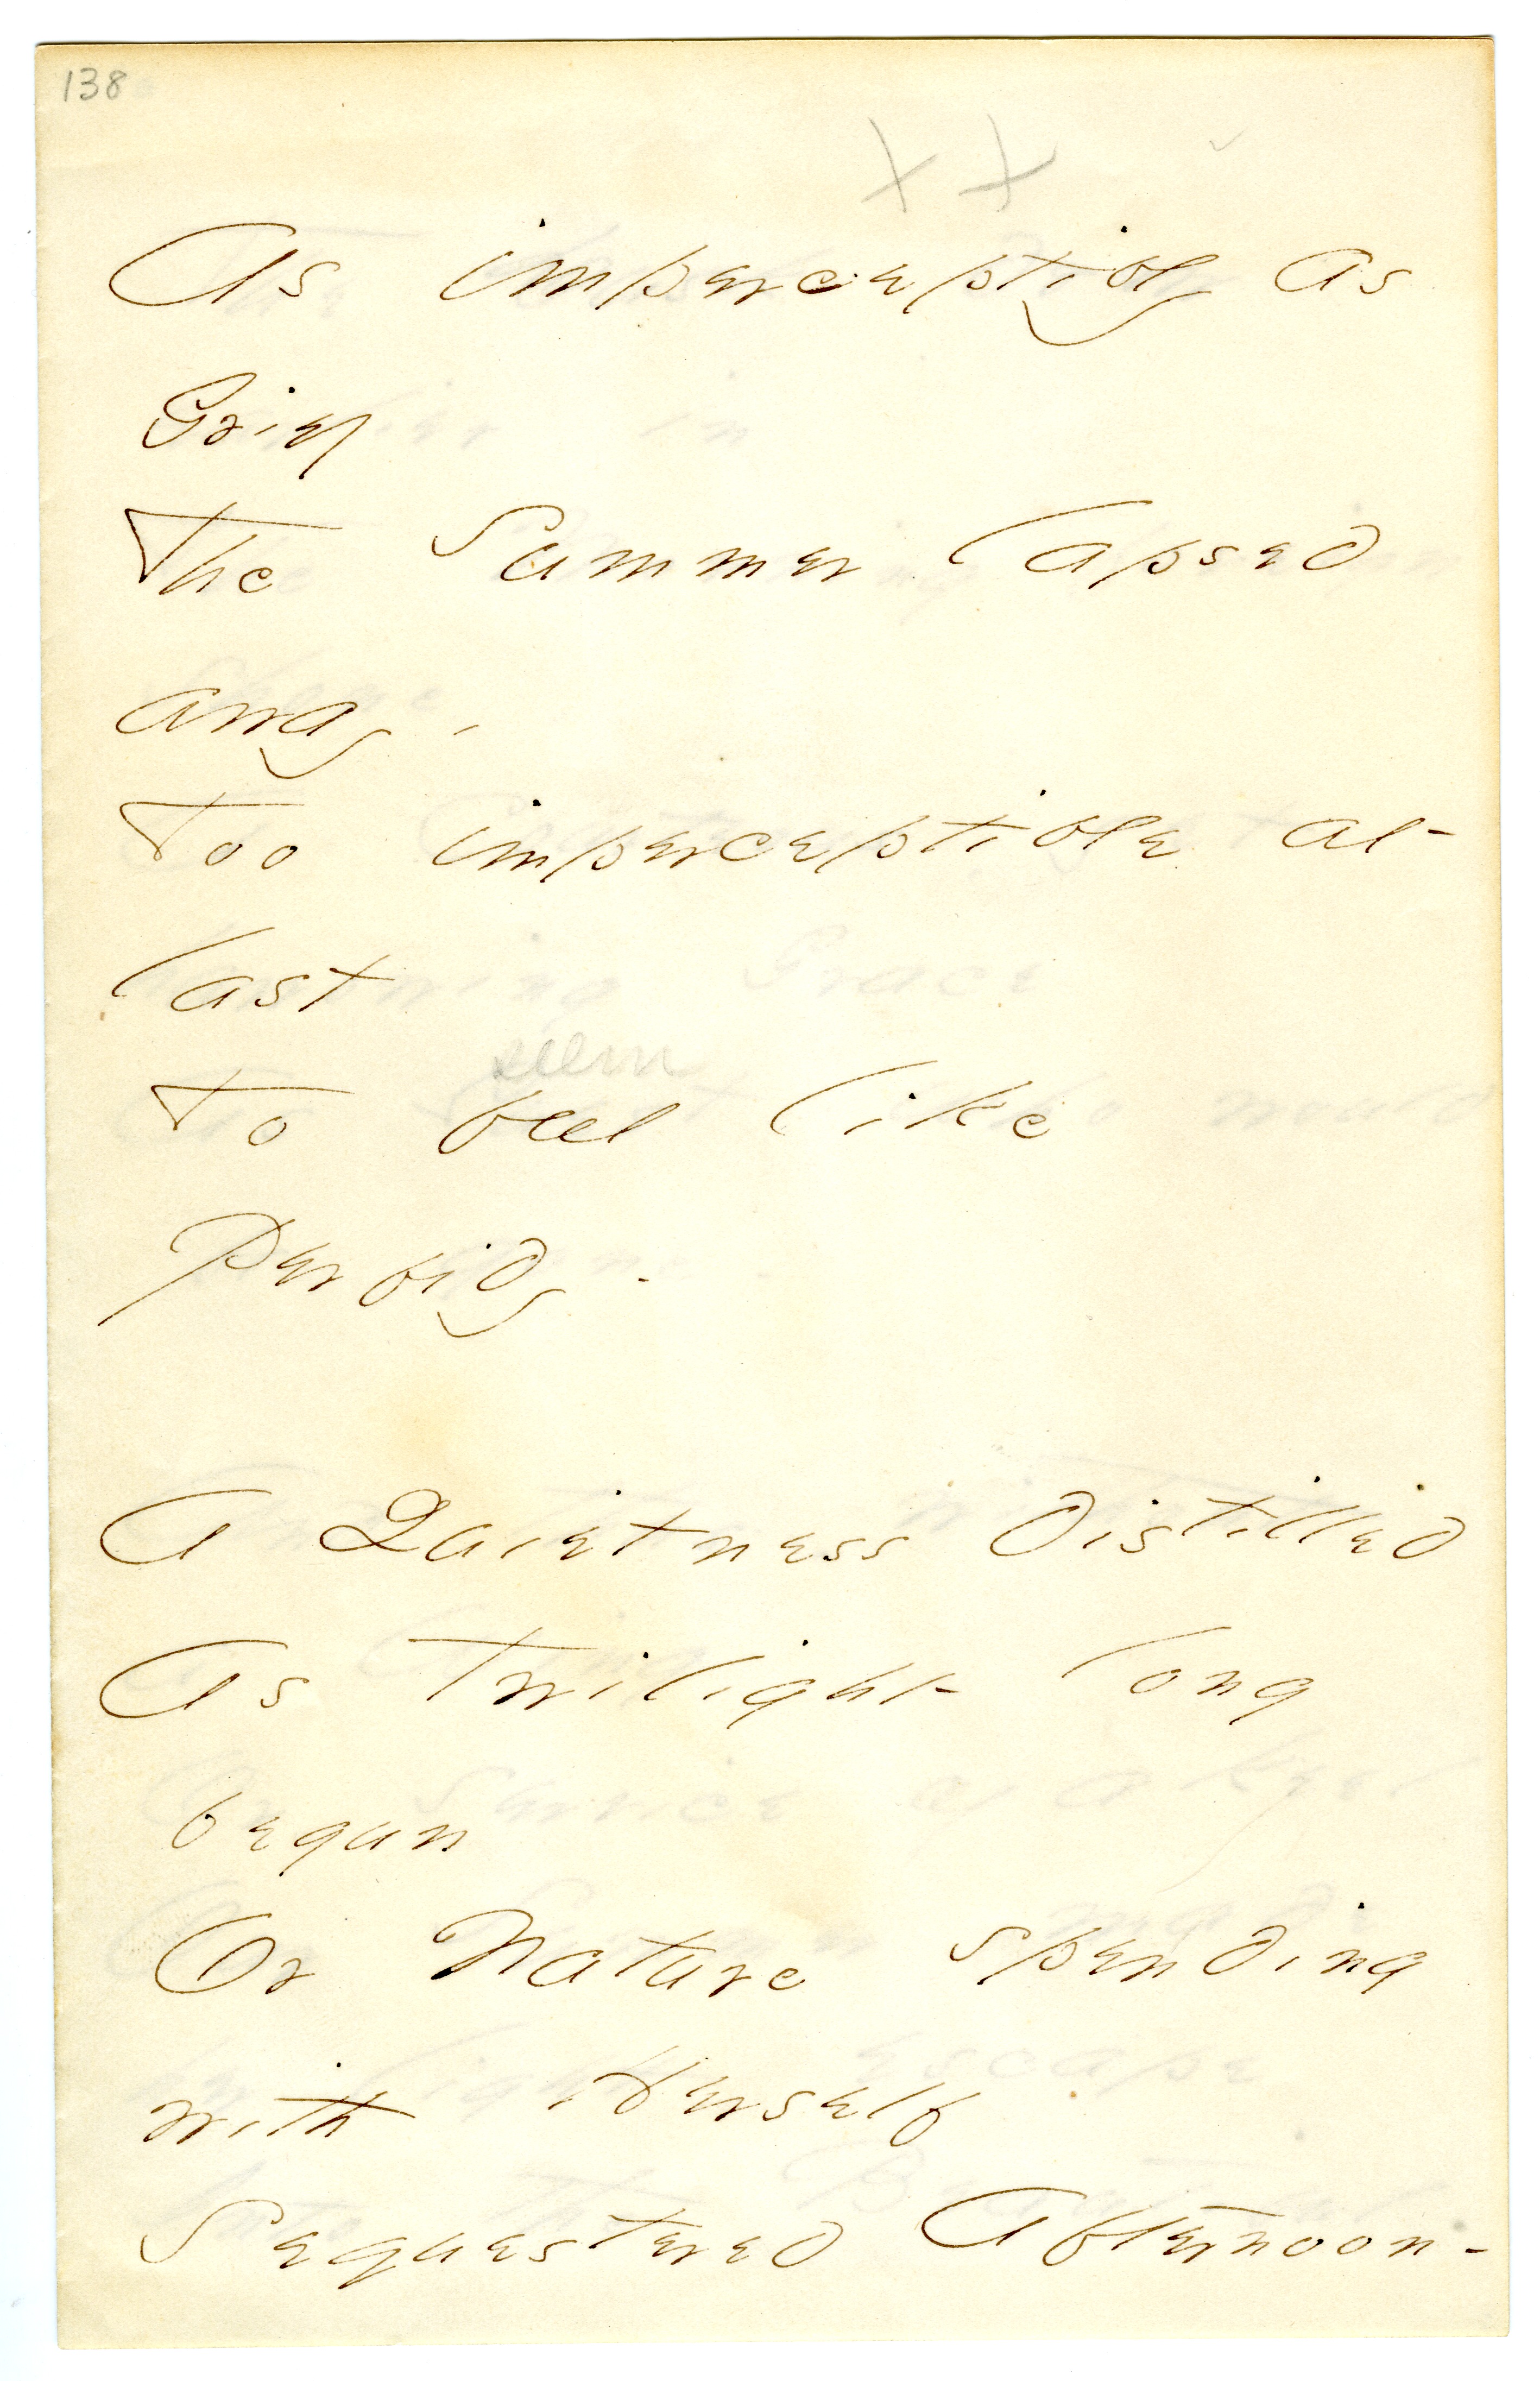 138
x x
As imperceptibly as
Grief
The Summer lapsed
away -
Too imperceptible at
last
seem
To feel like
Perfidy -
A Quietness distilled
As Twilight long
begun
Or Nature spending
with Herself
Sequestered Afternoon -